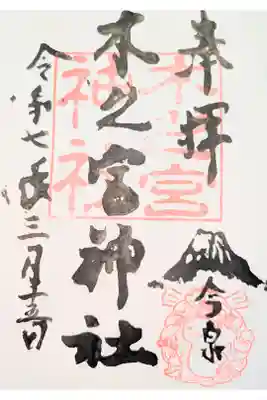 奉拝
今泉
木之宮神社
令和七年三月十五日